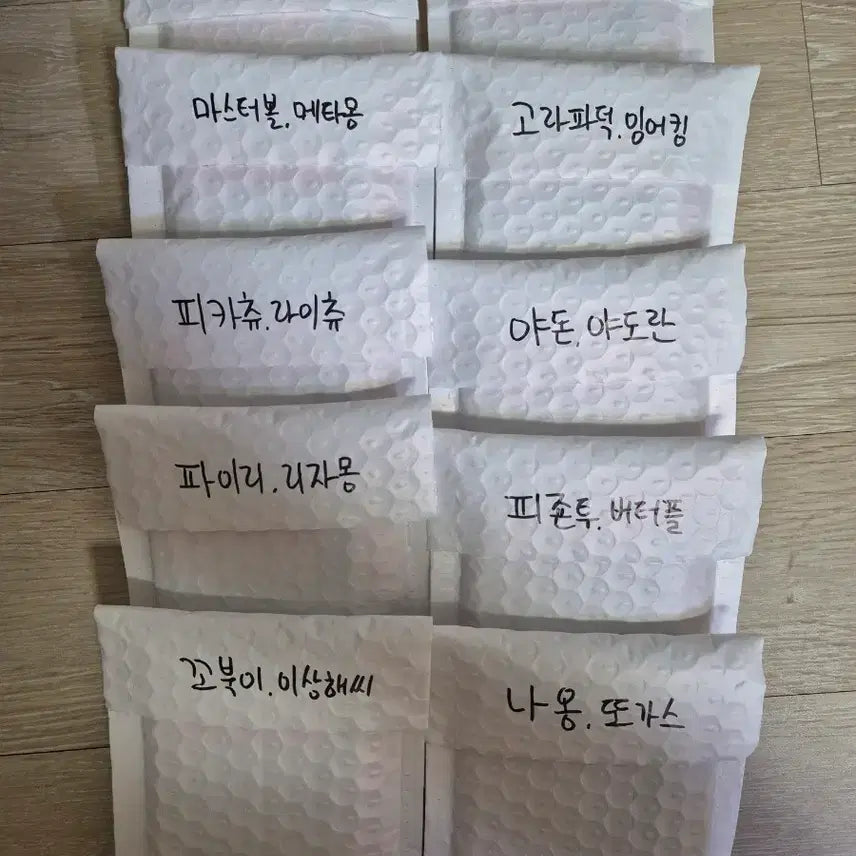 마스터볼.메타몽
고라파덕.잉어킹
피카츄.라이츄
야돈.야도란
파이리.리자몽
피죤투.버터플
꼬북이.이상해씨
나옹.또가스